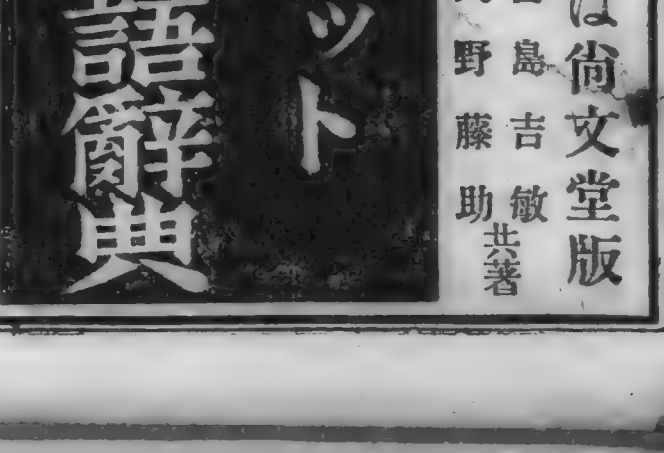 は尙文堂版
島吉敏
野藤助
共著
ット
語辭典